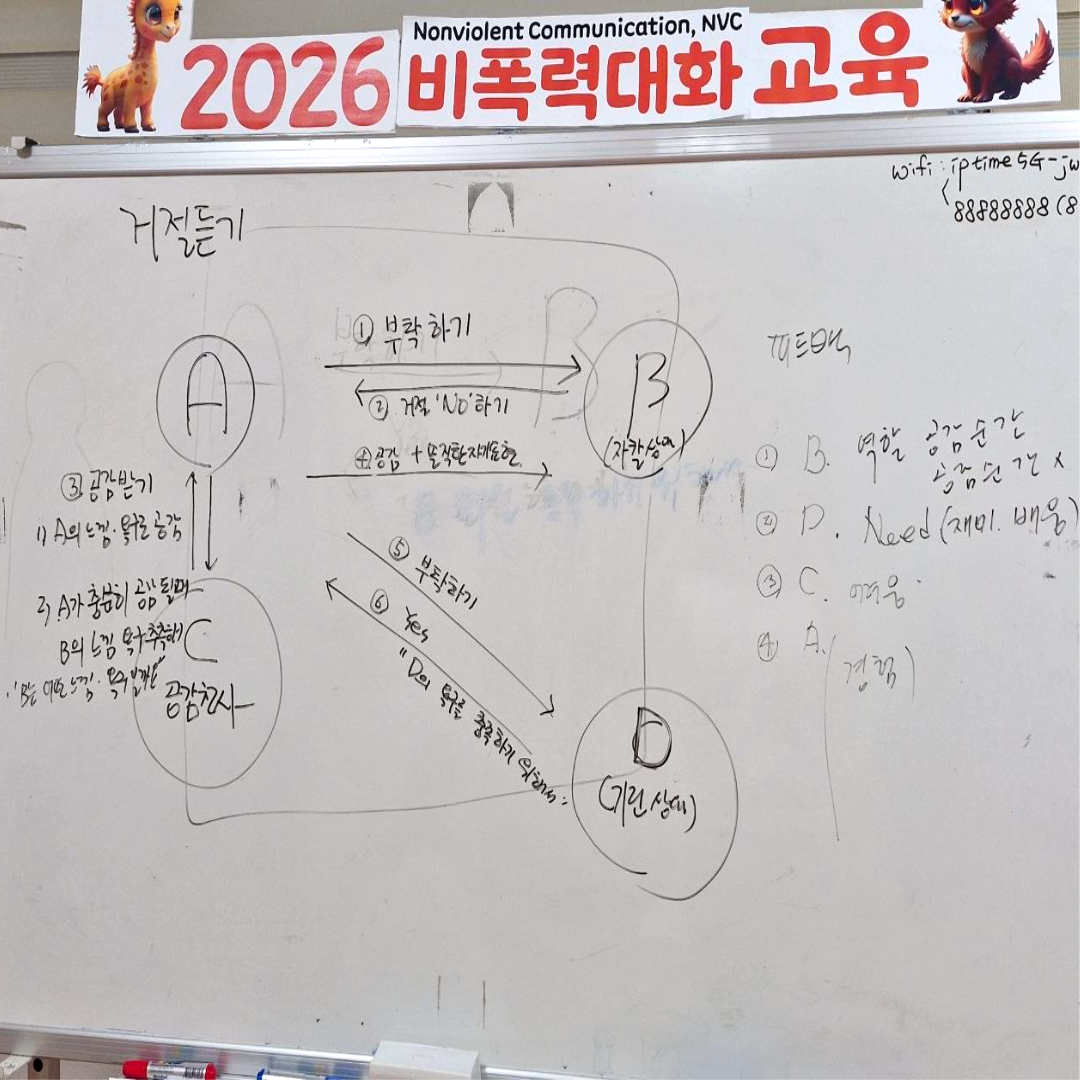 Nonviolent Communication, NVC
2026 비폭력대화 교육
wifi : iptime5G-jw
88888888 (8
거절듣기
A
① 부탁하기
② 거절 'No' 하기
④ 공감 + 솔직한자기표현
B
(자칼상대)
③ 공감받기
1) A의 느낌·욕구로 공감
2) A가 충분히 공감 되면
B의 느낌 욕구 추측해
"B는 어떤 느낌·욕구일까요"
C
공감천사
⑤ 부탁하기
⑥ Yes
"D의 욕구를 충족하기 위해서:
D
(기린상대)
피드백
① B. 역할 공감 순간
공감 순간 x
② D. Need (재미. 배움)
③ C. 어려움.
④ A.
경험)